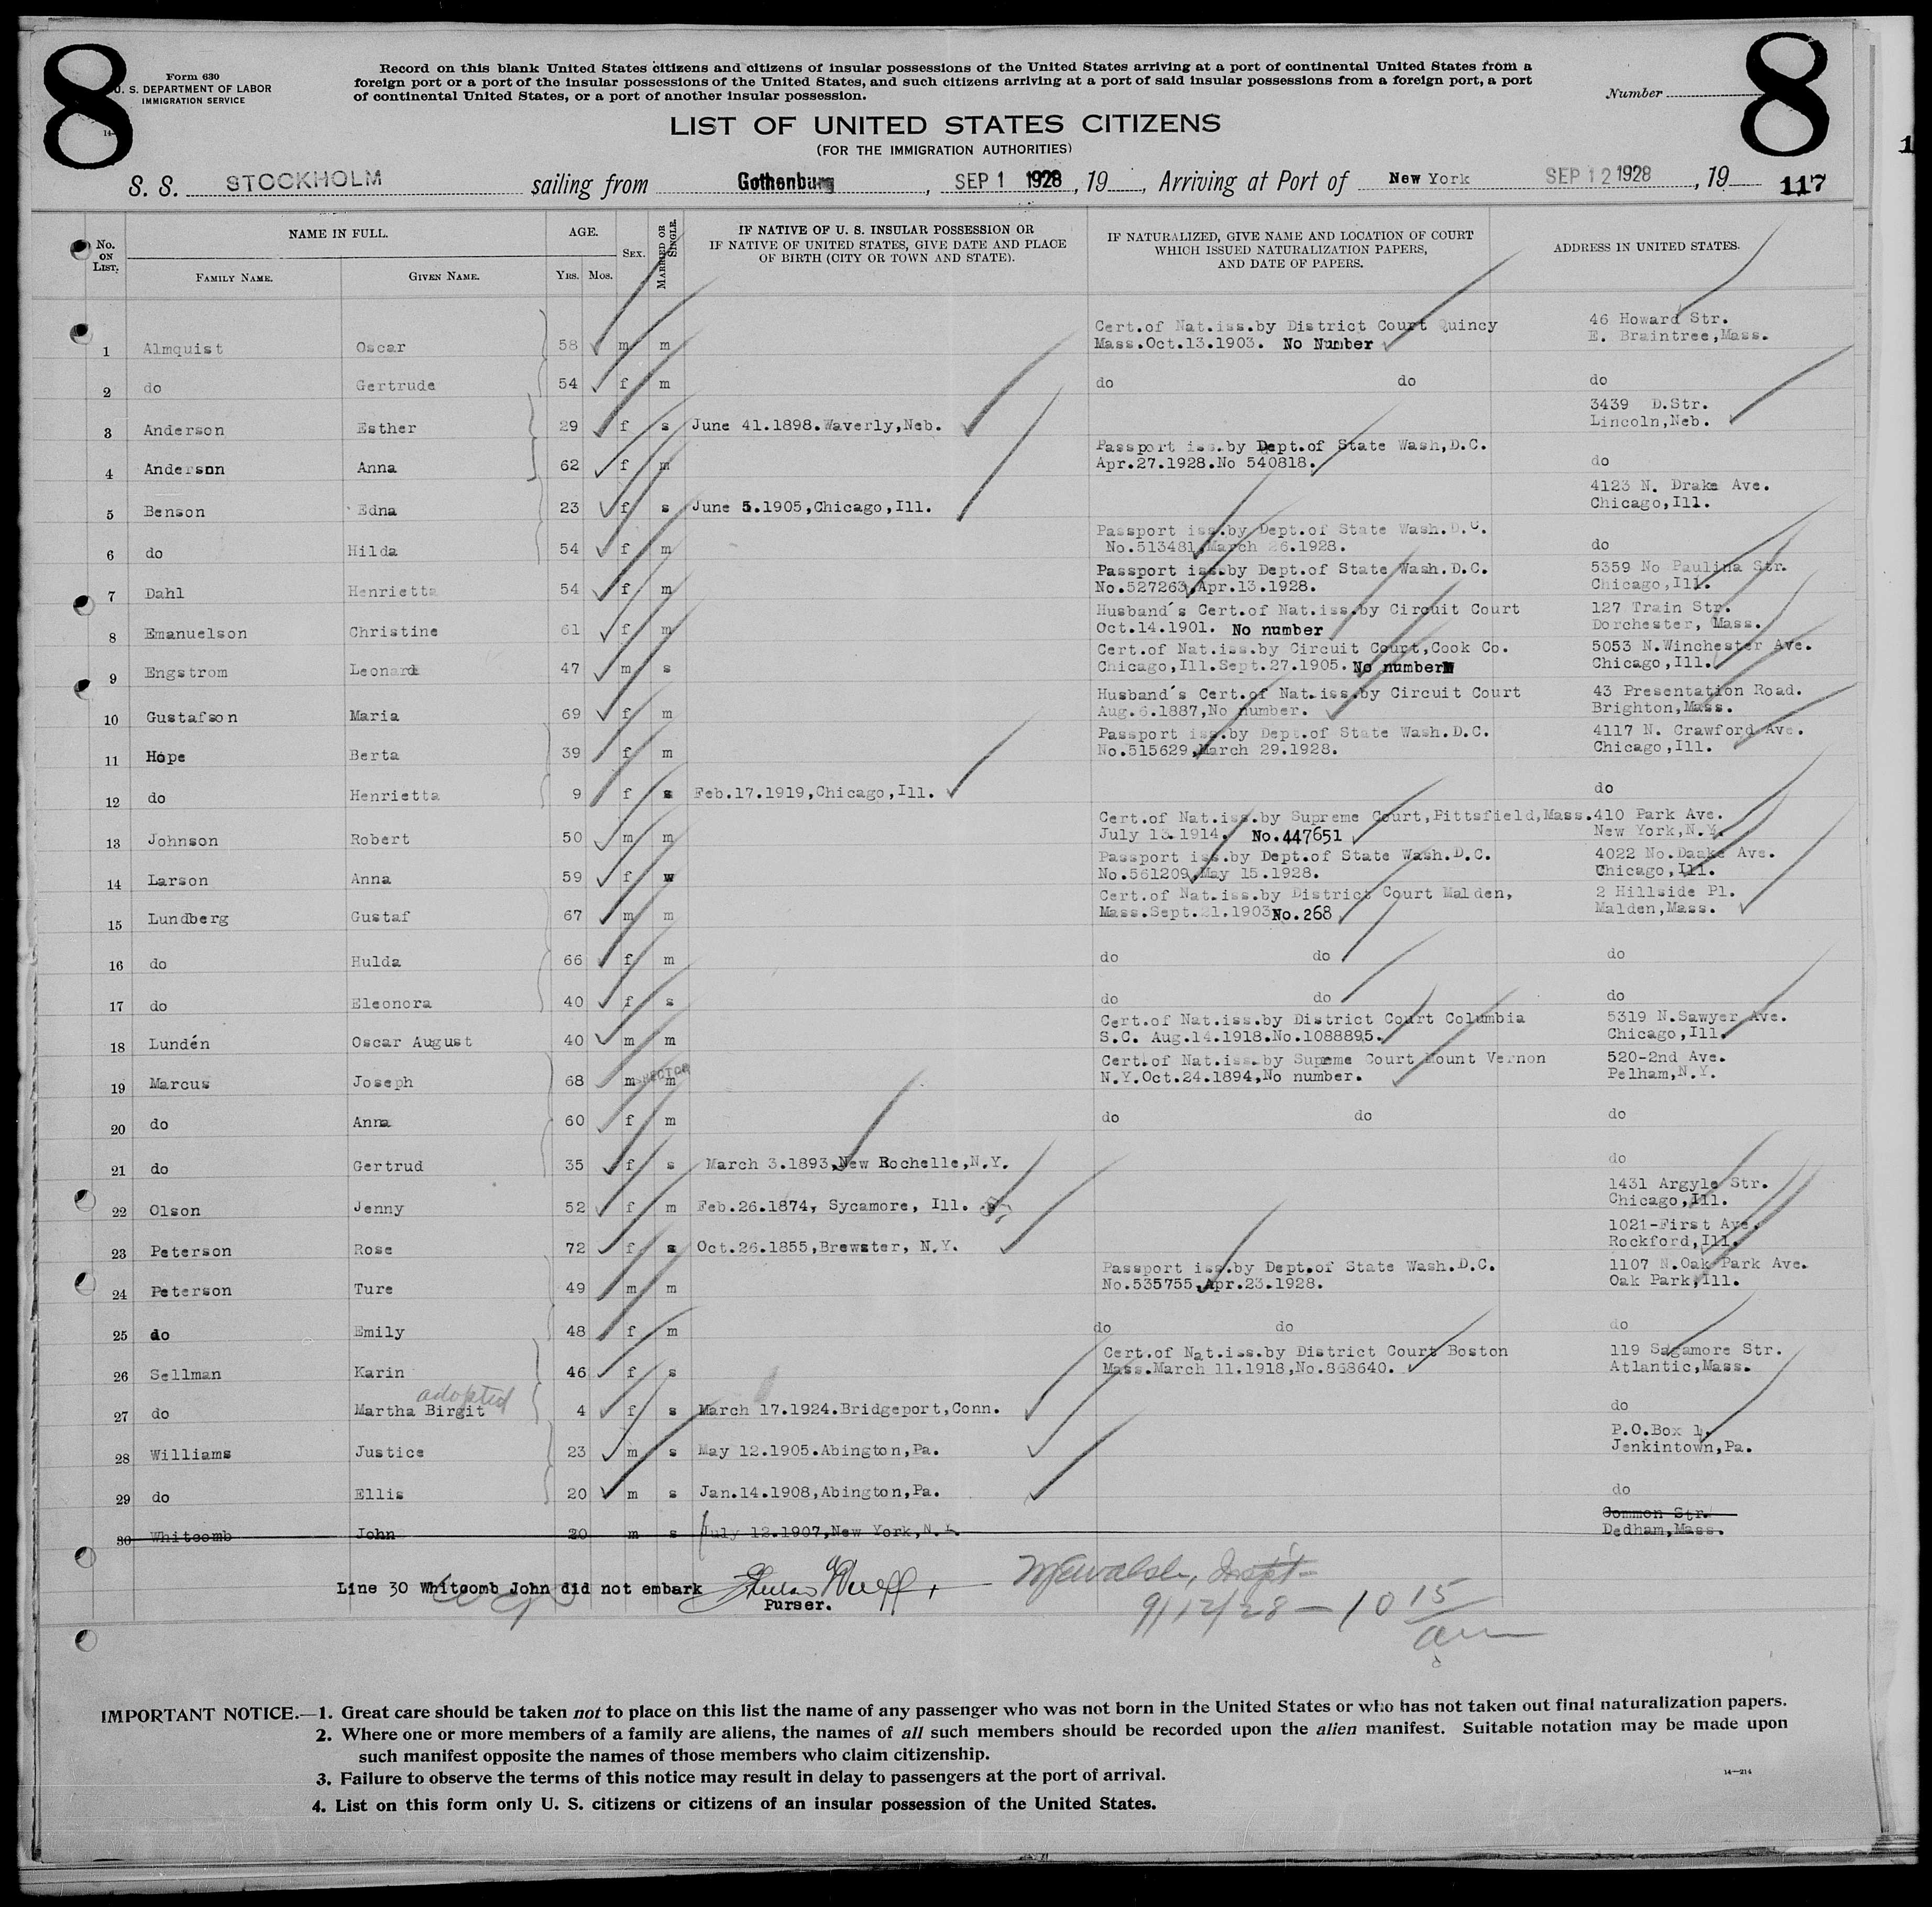 8
8
Form 630
U. S. DEPARTMENT OF LABOR
IMMIGRATION SERVICE
Record on this blank United States citizens and citizens of insular possessions of the United States arriving at a port of continental United States from a
foreign port or a port of the insular possessions of the United States, and such citizens arriving at a port of said insular possessions from a foreign port, a port
of continental United States, or a port of another insular possession.
Number
LIST OF UNITED STATES CITIZENS
(FOR THE IMMIGRATION AUTHORITIES)
S. S. STOCKHOLM sailing from Gothenburg, SEP 1 1928, 19 , Arriving at Port of New York SEP 12 1928, 19 117
No. ON LIST. NAME IN FULL. AGE. SEX. MARRIED OR SINGLE. IF NATIVE OF U. S. INSULAR POSSESSION OR IF NATIVE OF UNITED STATES, GIVE DATE AND PLACE OF BIRTH (CITY OR TOWN AND STATE). IF NATURALIZED, GIVE NAME AND LOCATION OF COURT WHICH ISSUED NATURALIZATION PAPERS, AND DATE OF PAPERS. ADDRESS IN UNITED STATES.
FAMILY NAME. GIVEN NAME. YRS. MOS.
Cert.of Nat.iss.by District Court Quincy 46 Howard Str.
1 Almquist Oscar 58 m m Mass.Oct.13.1903. No Number E. Braintree,Mass.
2 do Gertrude 54 f m do do do
3439 D.Str.
3 Anderson Esther 29 f s June 41.1898.Waverly,Neb. Lincoln,Neb.
Passport iss.by Dept.of State Wash,D.C.
4 Anderson Anna 62 f m Apr.27.1928.No 540818. do
4123 N. Drake Ave.
5 Benson Edna 23 f s June 5.1905,Chicago,Ill. Chicago,Ill.
Passport iss.by Dept.of State Wash.D.C.
6 do Hilda 54 f m No.513481,March 26.1928. do
Passport iss.by Dept.of State Wash.D.C. 5359 No Paulina Str.
7 Dahl Henrietta 54 f m No.527263,Apr.13.1928. Chicago,Ill.
Husband's Cert.of Nat.iss.by Circuit Court 127 Train Str.
8 Emanuelson Christine 61 f m Oct.14.1901. No number Dorchester, Mass.
Cert.of Nat.iss.by Circuit Court,Cook Co. 5053 N.Winchester Ave.
9 Engstrom Leonard 47 m s Chicago,Ill.Sept.27.1905. No number Chicago,Ill.
Husband's Cert.of Nat.iss.by Circuit Court 43 Presentation Road.
10 Gustafson Maria 69 f m Aug.6.1887,No number. Brighton,Mass.
Passport iss.by Dept.of State Wash.D.C. 4117 N. Crawford Ave.
11 Hope Berta 39 f m No.515629,March 29.1928. Chicago,Ill.
12 do Henrietta 9 f s Feb.17.1919,Chicago,Ill. do
Cert.of Nat.iss.by Supreme Court,Pittsfield,Mass. 410 Park Ave.
13 Johnson Robert 50 m m July 13.1914. No.447651 New York,N.Y.
Passport iss.by Dept.of State Wash.D.C. 4022 No.Daake Ave.
14 Larson Anna 59 f w No.561209,May 15.1928. Chicago,Ill.
Cert.of Nat.iss.by District Court Malden, 2 Hillside Pl.
15 Lundberg Gustaf 67 m m Mass.Sept.21.1903 No.268 Malden,Mass.
16 do Hulda 66 f m do do do
17 do Eleonora 40 f s do do do
Cert.of Nat.iss.by District Court Columbia 5319 N.Sawyer Ave.
18 Lundén Oscar August 40 m m S.C. Aug.14.1918.No.1088895. Chicago,Ill.
Cert.of Nat.iss.by Supreme Court Mount Vernon 520-2nd Ave.
19 Marcus Joseph 68 m m N.Y.Oct.24.1894,No number. Pelham,N.Y.
20 do Anna 60 f m do do do
21 do Gertrud 35 f s March 3.1893,New Rochelle,N.Y. do
1431 Argyle Str.
22 Olson Jenny 52 f m Feb.26.1874, Sycamore, Ill. Chicago,Ill.
1021-First Ave.
23 Peterson Rose 72 f s Oct.26.1855,Brewster, N.Y. Rockford,Ill.
Passport iss.by Dept.of State Wash.D.C. 1107 N.Oak Park Ave.
24 Peterson Ture 49 m m No.535755,Apr.23.1928. Oak Park,Ill.
25 do Emily 48 f m do do do
Cert.of Nat.iss.by District Court Boston 119 Sagamore Str.
26 Sellman Karin 46 f s Mass.March 11.1918,No.868640. Atlantic,Mass.
adopted
27 do Martha Birgit 4 f s March 17.1924.Bridgeport,Conn. do
P.O.Box 1,
28 Williams Justice 23 m s May 12.1905.Abington,Pa. Jenkintown,Pa.
29 do Ellis 20 m s Jan.14.1908,Abington,Pa. do
Common Str.
30 Whitcomb John 20 m s July 12.1907,New York,N.Y. Dedham,Mass.
Line 30 Whitcomb John did not embark
Purser.
9/12/28 - 10 15
am
IMPORTANT NOTICE.—1. Great care should be taken not to place on this list the name of any passenger who was not born in the United States or who has not taken out final naturalization papers.
2. Where one or more members of a family are aliens, the names of all such members should be recorded upon the alien manifest. Suitable notation may be made upon
such manifest opposite the names of those members who claim citizenship.
3. Failure to observe the terms of this notice may result in delay to passengers at the port of arrival.
14—214
4. List on this form only U. S. citizens or citizens of an insular possession of the United States.